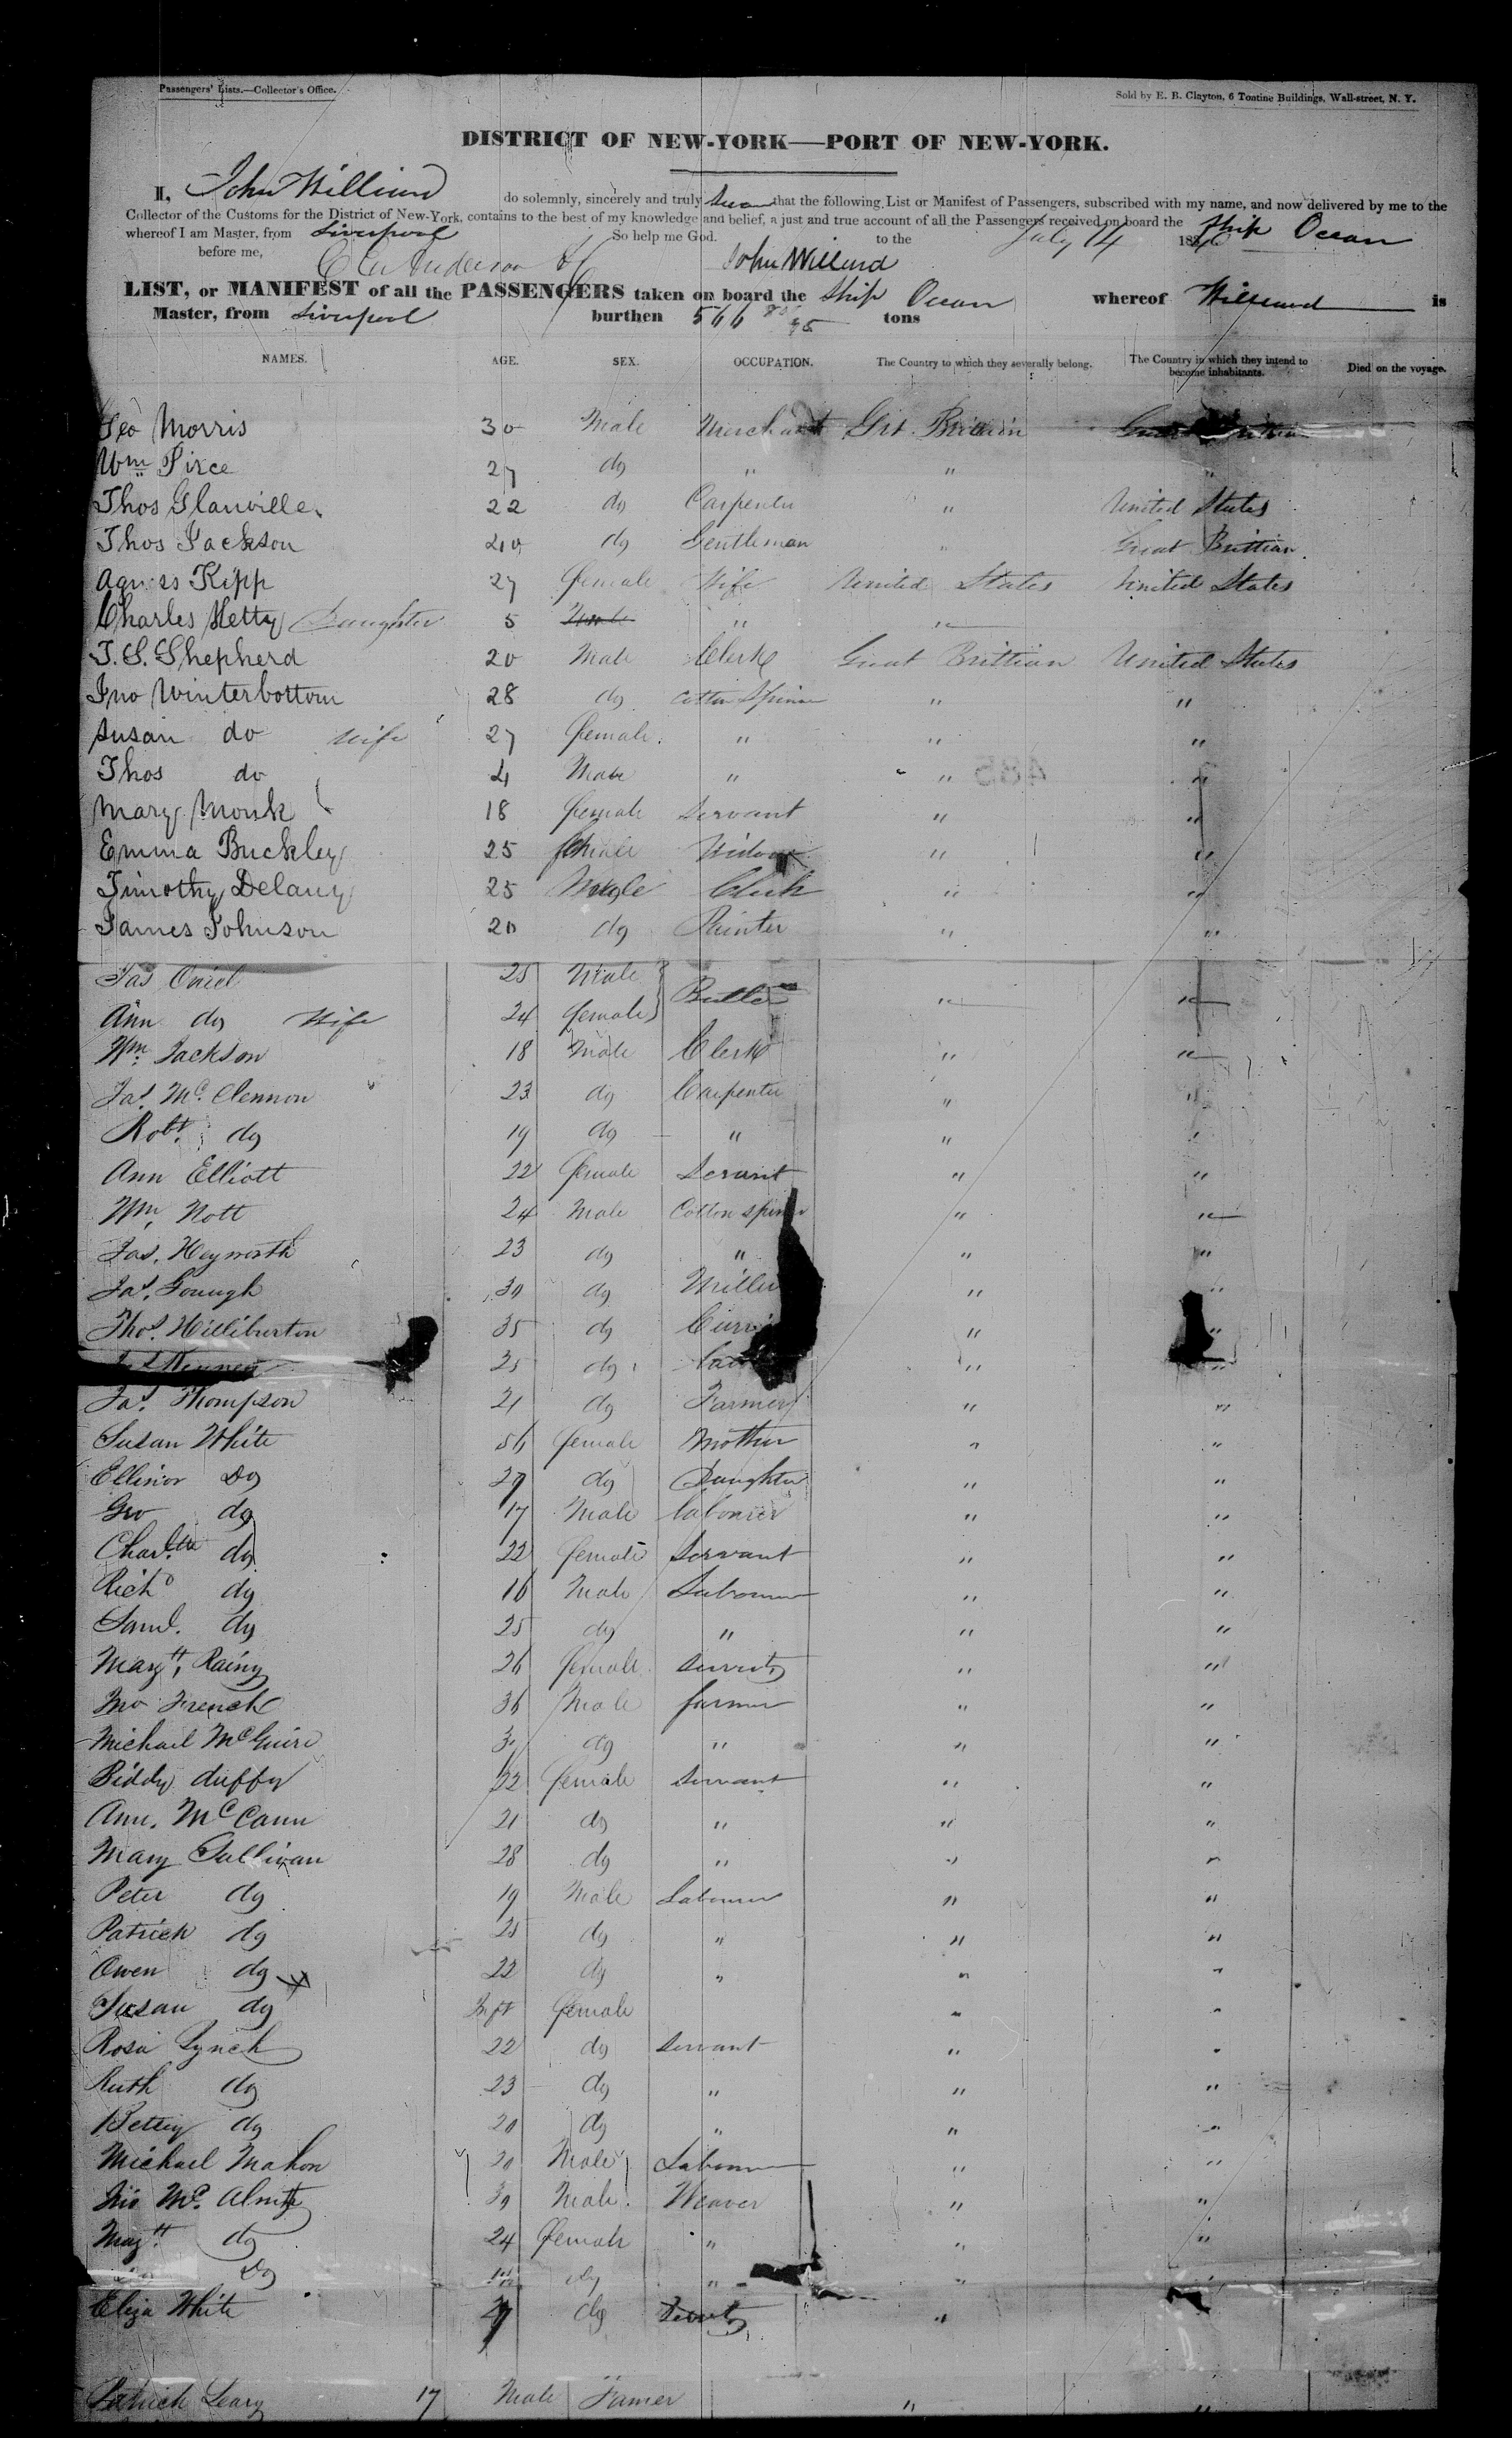 Passengers' Lists.—Collector's Office.
Sold by E. B. Clayton, 6 Tontine Buildings, Wall-street, N. Y.
DISTRICT OF NEW-YORK—PORT OF NEW-YORK.
I, John Willurd do solemnly, sincerely and truly swear that the following List or Manifest of Passengers, subscribed with my name, and now delivered by me to the
Collector of the Customs for the District of New-York, contains to the best of my knowledge and belief, a just and true account of all the Passengers received on board the Ship Ocean
whereof I am Master, from Liverpool So help me God. to the July 14 18
before me, Anderson John Willurd
LIST, or MANIFEST of all the PASSENGERS taken on board the Ship Ocean whereof Willurd is
Master, from Liverpool burthen 566 /95 tons
NAMES. AGE. SEX. OCCUPATION. The Country to which they severally belong. The Country in which they intend to become inhabitants. Died on the voyage.
Geo Morris 30 Male Merchant Grt Brittain
Wm Pirce 27 do " " "
Thos Glanville 22 do Carpenter " United States
Thos Jackson 40 do Gentleman " Great Brittian
Agness Kipp 27 female Wife United States United States
Charles Hetty Daughter 5 " "
T. S. Shepherd 20 Male Clerk Great Brittian United States
Jno Winterbottom 28 do Cotton Spiner " "
Susan do Wife 27 female " " "
Thos do 4 Male " " "
Mary Monk 18 female Servant " "
Emma Buckley 25 female Widow " "
Timothy Delany 25 Male Clerk " "
James Johnson 20 do Painter " "
Jas Oniel 25 Male Butler " "
Ann do Wife 24 female
Wm. Jackson 18 Male Clerk " "
Jas. McClennon 23 do Carpenter " "
Robt. do 19 do " " "
Ann Elliott 22 female Servant " "
Wm. Nott 24 Male Cotton spiner " "
Jas. Heyworth 23 do " " "
Jas. Gough 30 do Miller " "
Thos. Hilliburton 35 do " "
25 do " "
Jas. Thompson 21 do Farmer " "
Susan White 56 female Mother " "
Ellinor Do 29 do Daughter " "
Geo do 17 Male labourer " "
Charltte do 22 female Servant " "
Richd do 16 Male Labourer " "
Saml. do 25 do " " "
Margtt. Rainy 26 female Servt " "
Jno French 36 Male farmer " "
Michael McGuire do " " "
Biddy duffy 22 female Servant " "
Ann. McCann 21 do " " "
Mary Sullivan 28 do " " "
Peter do 19 Male Labourer " "
Patrick do 25 do " " "
Owen do 22 do " " "
Susan do Inft female " "
Rosa Lynch 22 do Servant " "
Ruth do 23 do " " "
Bettey do 20 do " " "
Michael Mahon 20 Male Labourer " "
Jno Mc. 30 Male Weaver " "
Magtt. do 24 female " " "
Do do " "
Eliza White do Servt "
Patrick Leary 17 Male Famer " "